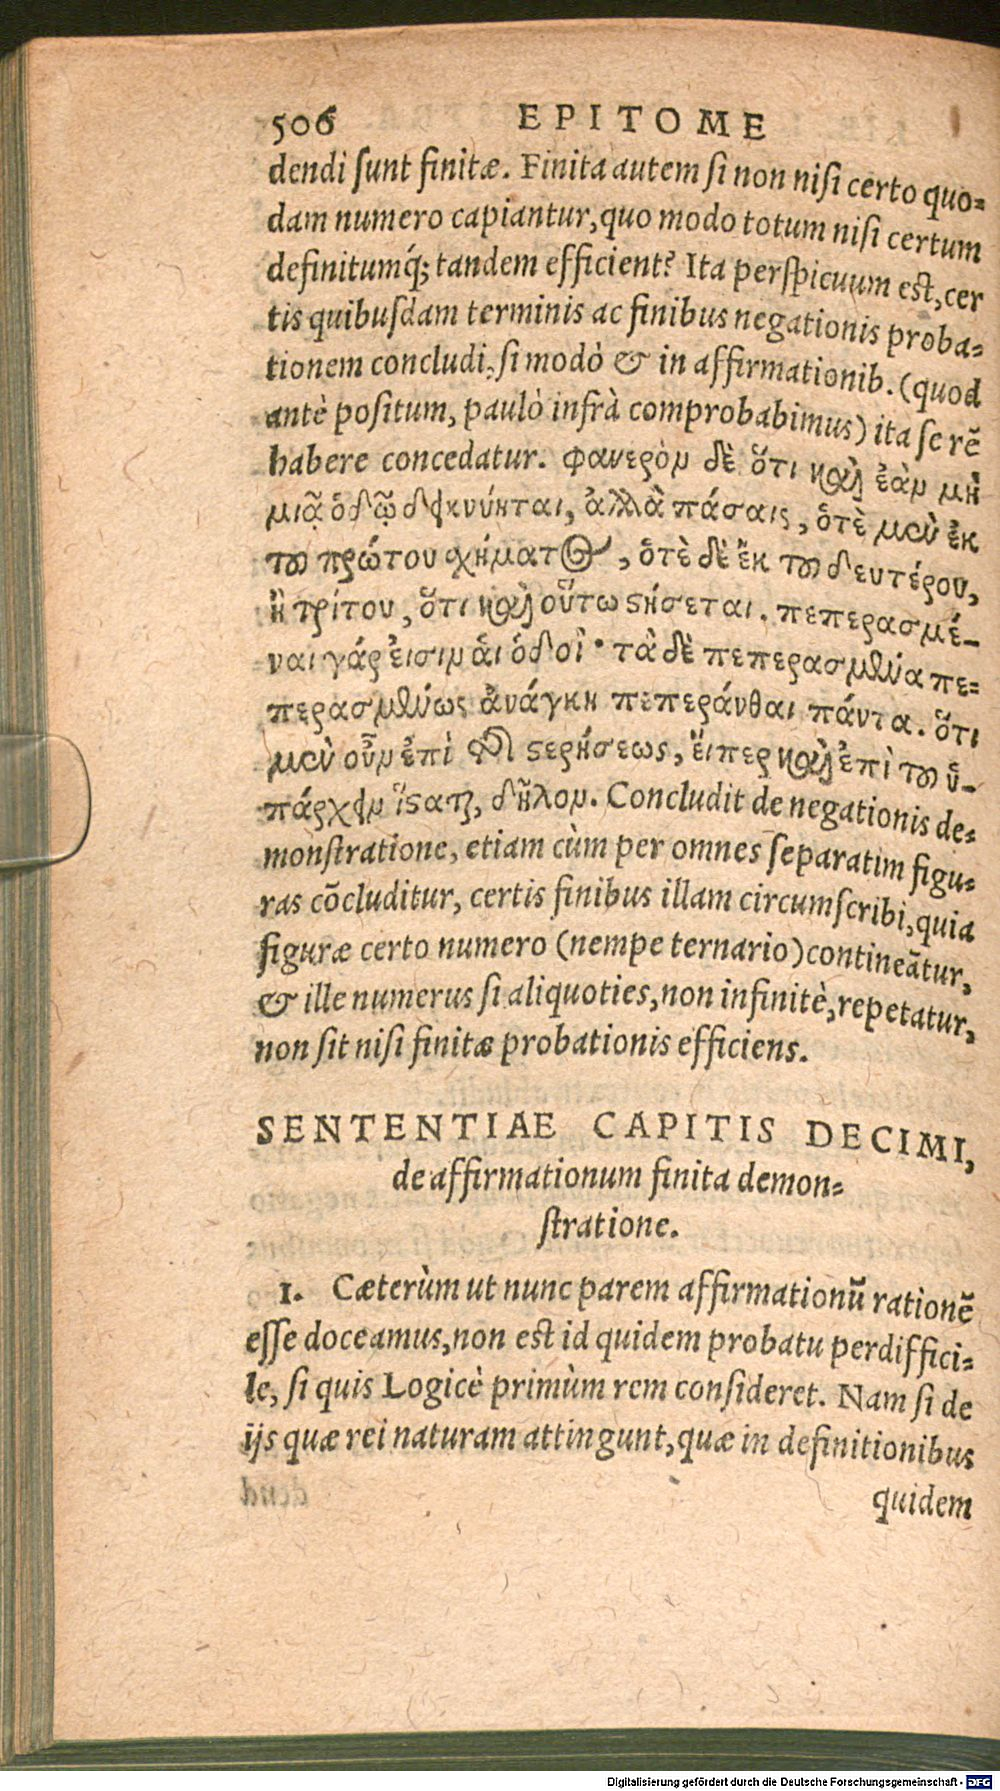 506 EPITOME
dendi sunt finitæ. Finita autem si non nisi certo quo=
dam numero capiantur, quo modo totum nisi certum
definitumq́; tandem efficient? Ita perspicuum est, cer
tis quibusdam terminis ac finibus negationis proba=
tionem concludi, si modò & in affirmationib. (quod
antè positum, paulò infrà comprobabimus) ita se rẽ
habere concedatur. φανερὸν δὲ ὅτι καὶ ἐὰν μὴ
μιᾷ ὁδῷ δεικνύηται, ἀλλὰ πάσαις, ὁτὲ μὲν ἐκ
τοῦ πρώτου χήματος, ὁτὲ δὲ ἐκ τοῦ δευτέρου,
ἢ τρίτου, ὅτι καὶ οὕτω στήσεται. πεπερασμέ-
ναι γάρ εἰσιν αἱ ὁδοὶ· τὰ δὲ πεπερασμένα πε=
περασμένως ἀνάγκη πεπεράνθαι πάντα. ὅτι
μὲν οὖν ἐπὶ τῆς στερήσεως, εἴπερ καὶ ἐπὶ τοῦ ὑ-
πάρχειν ἵσταται, δῆλον. Concludit de negationis de=
monstratione, etiam cùm per omnes separatim figu=
ras cõcluditur, certis finibus illam circumscribi, quia
figuræ certo numero (nempe ternario) contineãtur,
& ille numerus si aliquoties, non infinitè, repetatur,
non sit nisi finitæ probationis efficiens.
SENTENTIAE CAPITIS DECIMI,
de affirmationum finita demon=
stratione.
1. Cæterùm ut nunc parem affirmationũ rationẽ
esse doceamus, non est id quidem probatu perdiffici=
le, si quis Logicè primùm rem consideret. Nam si de
ijs quæ rei naturam attingunt, quæ in definitionibus
quidem
Digitalisierung gefördert durch die Deutsche Forschungsgemeinschaft - DFG